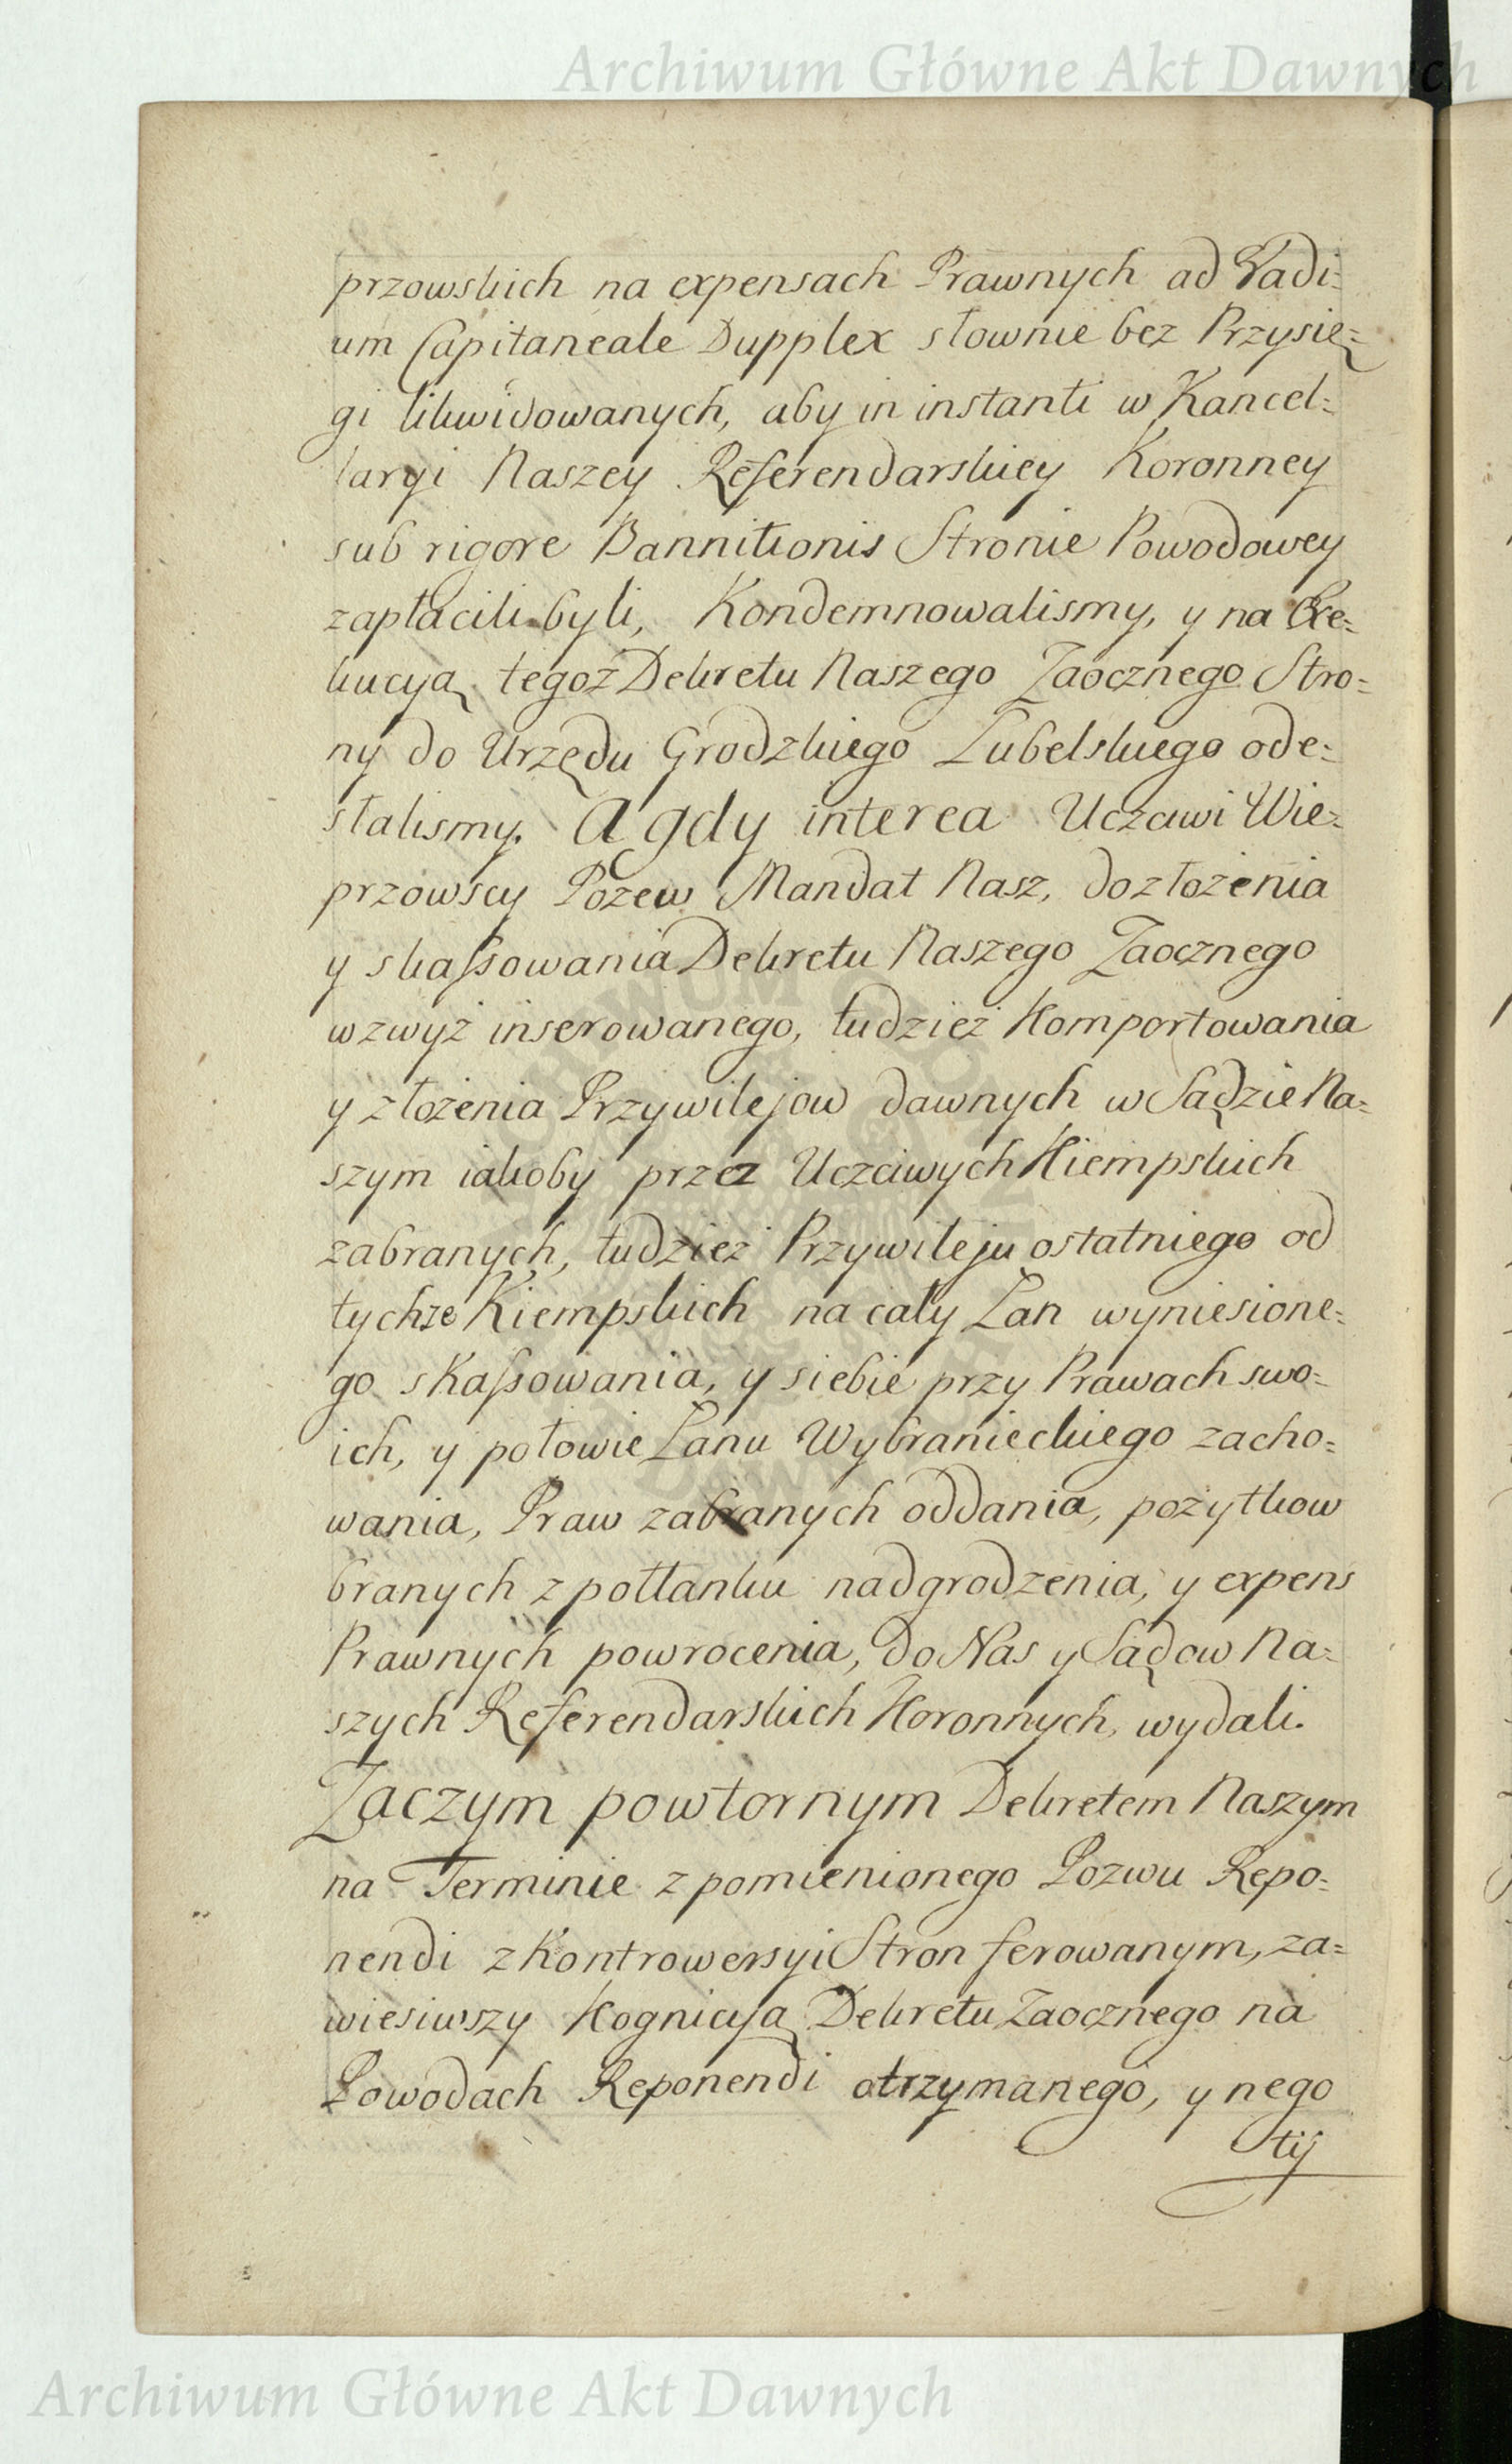 Archiwum Główne Akt Dawnych
przowskich na expensach Prawnych ad Vadi=
um Capitaneale Dupplex słownie bez Przysię=
gi likwidowanych, aby in instanti w Kancel=
laryi Naszey Referendarskiey Koronney
sub rigore Bannitionis Stronie Powodowey
zapłacili byli, Kondemnowalismy, y na Exe=
kucyą tegoż Dekretu Naszego Zaocznego Stro=
ny do Urzędu Grodzkiego Lubelskiego ode=
słalismy. A gdy interea Uczciwi Wie=
przowscy Pozew Mandat Nasz, do złożenia
y skassowania Dekretu Naszego Zaocznego
wzwyż inserowanego, tudzież Komportowania
y złożenia Przywilejow dawnych w Sądzie Na=
szym iakoby przez Uczciwych Kiempskich
zabranych, tudzież Przywileju ostatniego od
tychże Kiempskich na cały Łan wyniesione=
go skassowania, y siebie przy Prawach swo=
ich, y połowie Łanu Wybranieckiego zacho=
wania, Praw zabranych oddania, pożytkow
branych z połłanku nadgrodzenia, y expens
Prawnych powrocenia, do Nas y Sądow Na=
szych Referendarskich Koronnych, wydali.
Zaczym powtornym Dekretem Naszym
na Terminie z pomienionego Pozwu Repo=
nendi z Kontrowersyi Stron ferowanym, za=
wiesiwszy Kognicyą Dekretu Zaocznego na
Powodach Reponendi otrzymanego, y nego
tij
Archiwum Główne Akt Dawnych